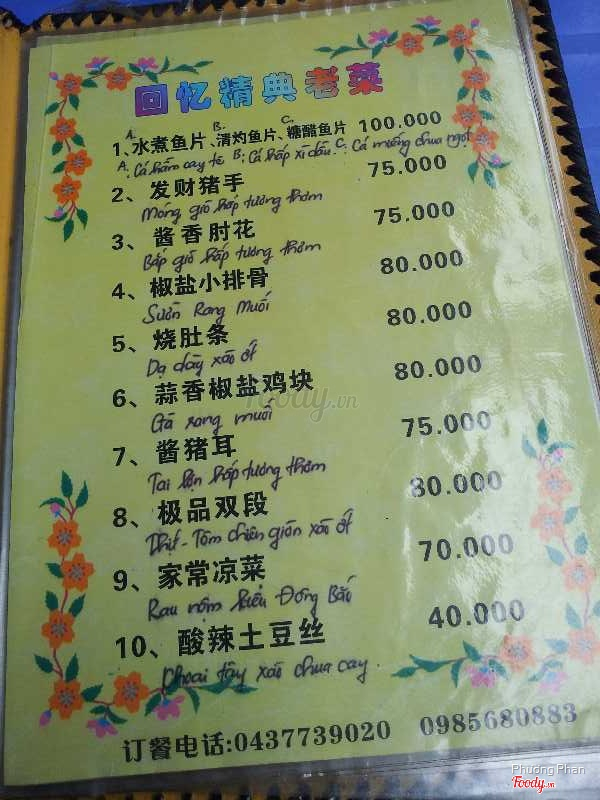 回忆精典老菜
A. B. C.
1、水煮鱼片、清灼鱼片、糖醋鱼片 100.000
A: Cá hầm cay tê B: Cá hấp xì dầu. C: Cá muống chua ngọt
2、发财猪手 75.000
Móng giò hấp tương thơm
3、酱香肘花 75.000
Bắp giò hấp tương thơm
4、椒盐小排骨 80.000
Sườn Rang Muối
5、烧肚条 80.000
Dạ dày xào ớt
6、蒜香椒盐鸡块 80.000
Gà rang muối
7、酱猪耳 75.000
Tai lợn hấp tương thơm
8、极品双段 80.000
Thịt - Tôm chiên giòn xào ớt
9、家常凉菜 70.000
Rau nộm kiểu Đông Bắc
10、酸辣土豆丝 40.000
Khoai tây xào chua cay
订餐电话:0437739020 0985680883
foody.vn
Phuong Phan
Foody.vn